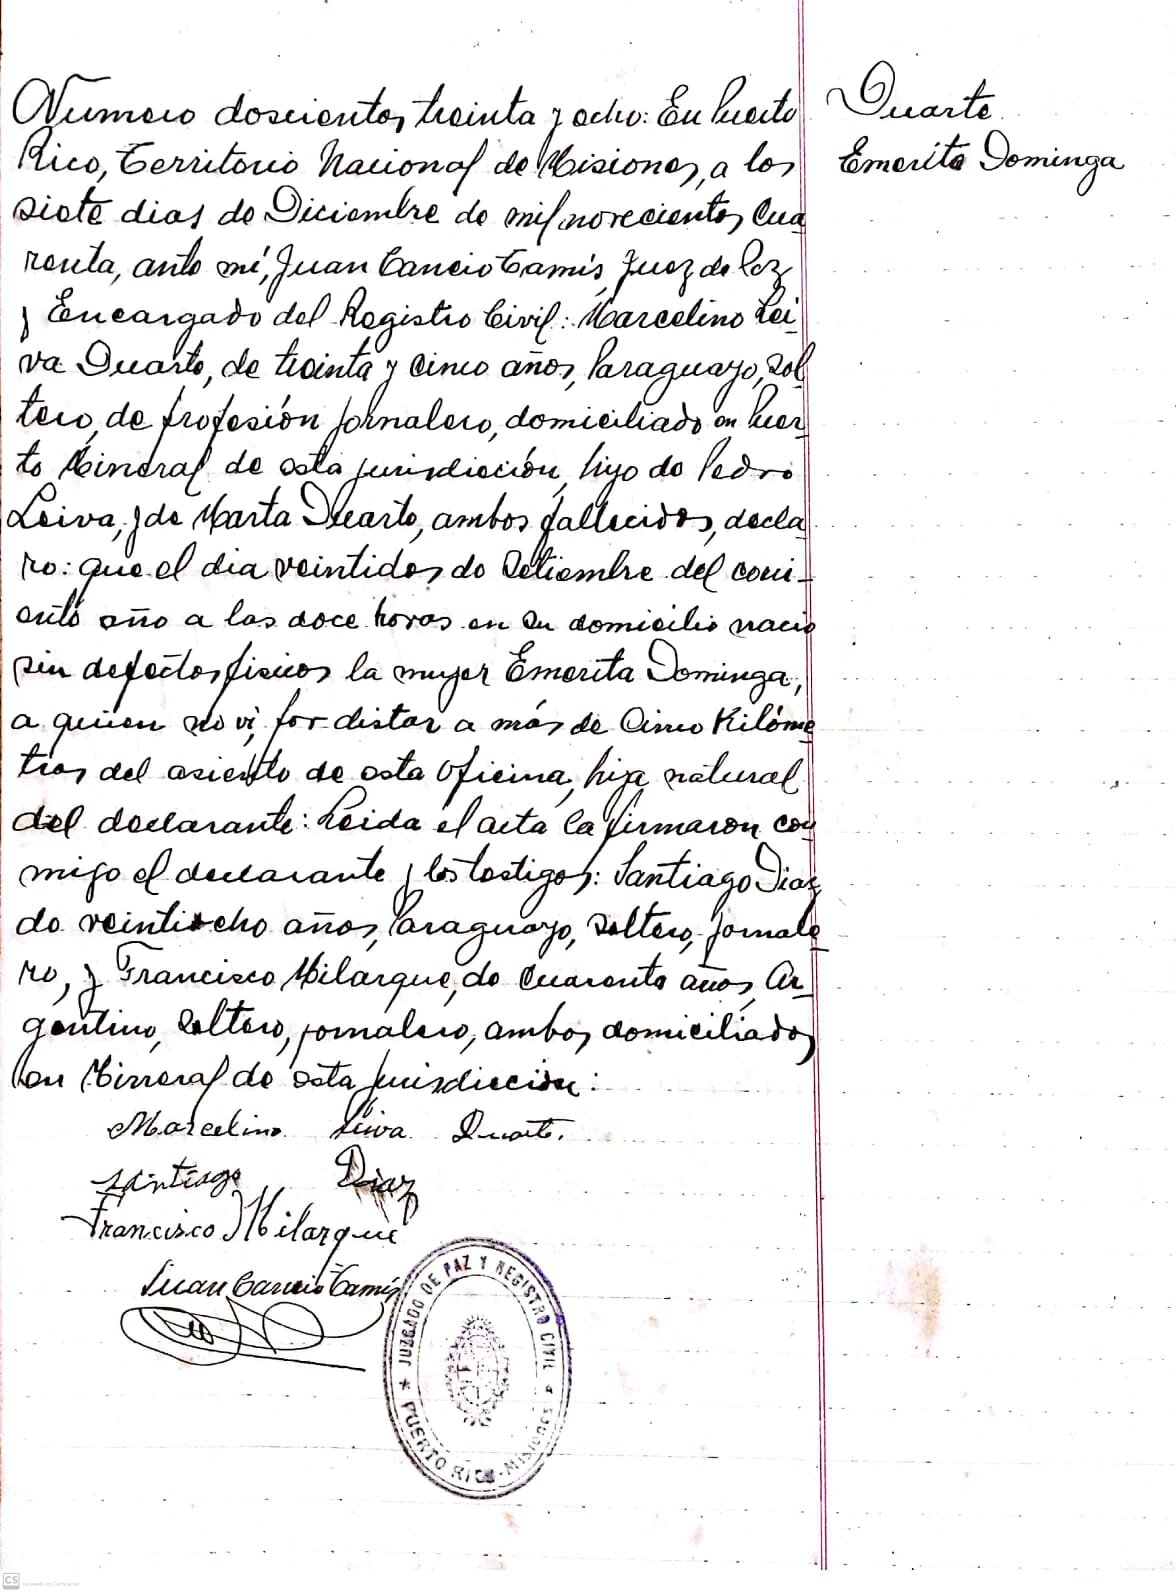 Numero doscientos treinta y ocho: En Puerto
Rico, Territorio Nacional de Misiones, a los
siete dias de Diciembre de mil novecientos cua
renta, ante mí, Juan Cancio Tamis, Juez de Paz
y Encargado del Registro Civil: Marcelino Lei
va Duarte, de treinta y cinco años, Paraguayo, sol
tero, de profesión jornalero, domiciliado en Puer
to Mineral de esta jurisdicción, hijo de Pedro
Leiva, y de Marta Duarte, ambos fallecidos, decla
ro: que el dia veintidos de Setiembre del corri-
ente año a las doce horas en su domicilio nacio
sin defectos fisicos la mujer Emerita Dominga,
a quien no vi, por distar a más de cinco Kilóme
tros del asiento de esta Oficina, hija natural
del declarante: Leida el acta la firmaron con
migo el declarante y los testigos: Santiago Diaz
de veintiocho años, Paraguayo, soltero, jornale
ro, y Francisco Milarque, de cuarenta años, Ar-
gentino, soltero, jornalero, ambos domiciliados
en Mineral de esta jurisdiccion:
Marcelino Leiva Duarte.
Santiago Diaz
Francisco Milarque
Juan Cancio Tamis
JUZGADO DE PAZ Y REGISTRO CIVIL
PUERTO RICO - MISIONES
Duarte
Emerita Dominga
CS